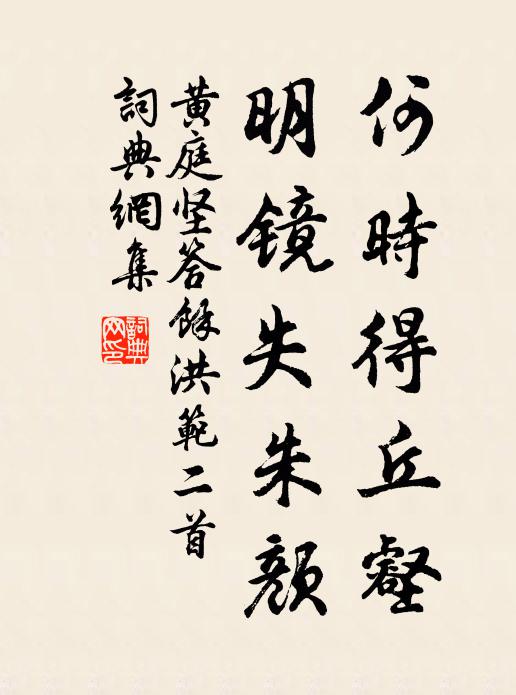 何時得丘壑
明镜失朱顏
黄庭坚答餘洪範二首
詞典網集
詞典網印